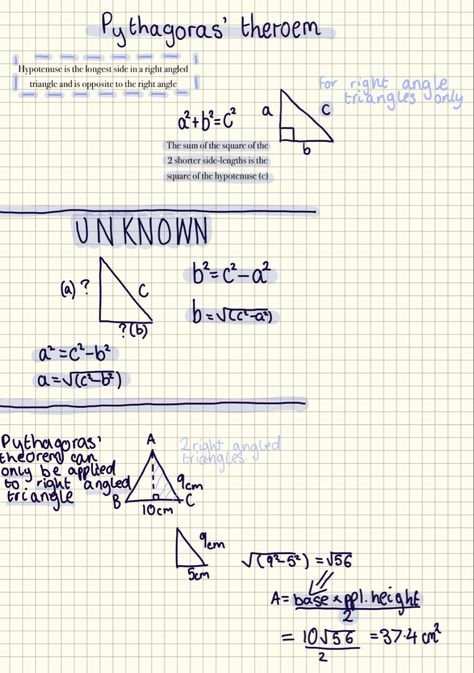 Pythagoras' theroem
Hypotenuse is the longest side in a right angled
triangle and is opposite to the right angle
for right angle
triangles only
a²+b²=c²
a
c
b
The sum of the square of the
2 shorter side-lengths is the
square of the hypotenuse (c)
UNKNOWN
(a) ?
c
?(b)
b²=c²-a²
b=√(c²-a²)
a²=c²-b²
a=√(c²-b²)
Pythagoras'
theorem can
only be applied
to right angled
triangle
A
2 right angled
triangles
9cm
B
C
10cm
9cm
5cm
√(9²-5²)=√56
A= base × ppl. height
2
= 10√56 = 37.4 cm²
2